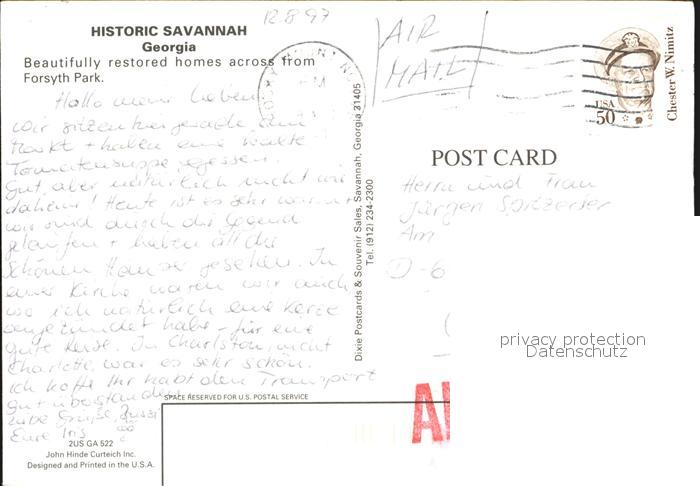 12.8.97
HISTORIC SAVANNAH
Georgia
Beautifully restored homes across from
Forsyth Park.
Hallo meine Lieben
wir sitzen hier gerade am
+ haben eine kalte
Tomatensuppe gegessen.
Gut, aber natürlich nicht wie
daheim! Heute ist es sehr warm
wir sind durch die Gegend
gelaufen + haben all die
schönen Häuser gesehen. In
einer Kirche waren wir auch
wo ich natürlich eine Kerze
angezündet habe - für eine
gute Reise. In Charlston, nicht
Charlotte, war es sehr schön.
ich hoffe Ihr habt den Transport
gut überstanden
Liebe Grüße,
Eure Iris
2US GA 522
John Hinde Curteich Inc.
Designed and Printed in the U.S.A.
Dixie Postcards & Souvenir Sales, Savannah, Georgia 31405
Tel. (912) 234-2300
SPACE RESERVED FOR U.S. POSTAL SERVICE
AIR
MAIL
USA
50
Chester W. Nimitz
POST CARD
Herrn und Frau
Jürgen
Am
D-6
privacy protection
Datenschutz